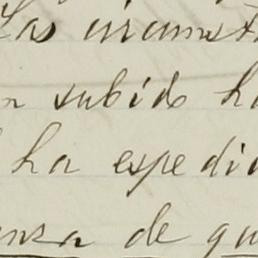 Las circunst
n subido h
ha espedid
nza de qu